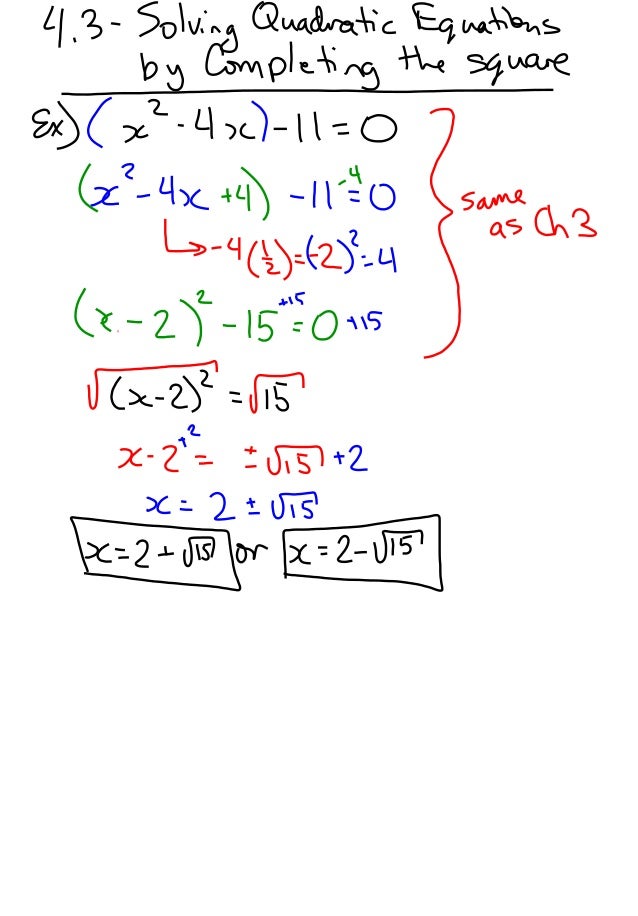 4.3 - Solving Quadratic Equations
by Completing the square
Ex) (x² - 4x) - 11 = 0
(x² - 4x + 4) - 11 - 4 = 0
same
as Ch 3
↳ -4(½) = (-2)² = 4
(x - 2)² - 15 + 15 = 0 + 15
√(x - 2)² = √15
x - 2 + 2 = ± √15 + 2
x = 2 ± √15
x = 2 + √15 or x = 2 - √15